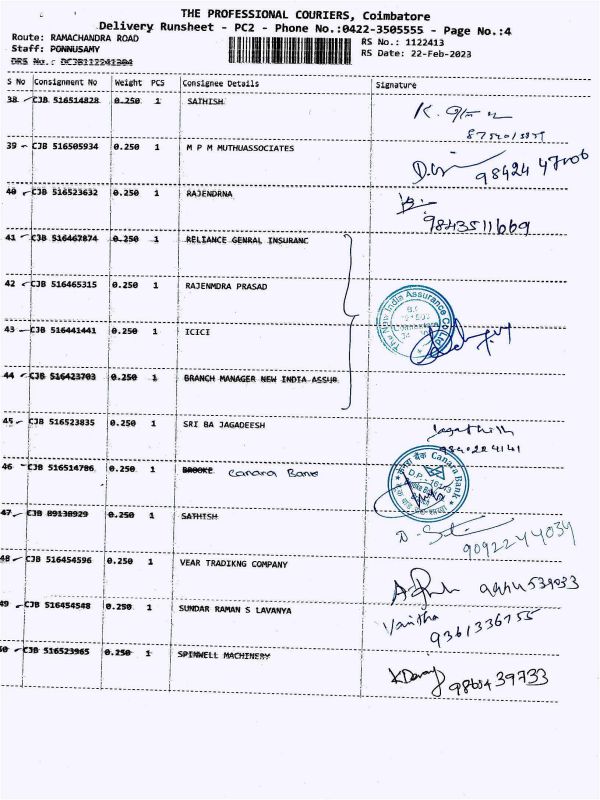 THE PROFESSIONAL COURIERS, Coimbatore
Delivery Runsheet - PC2 - Phone No.:0422-3505555 - Page No.:4
Route: RAMACHANDRA ROAD
Staff: PONNUSAMY
DRS No.: DCJB112241304
RS No.: 1122413
RS Date: 22-Feb-2023
S No Consignment No Weight PCS Consignee Details Signature
38 CJB 516514828 0.250 1 SATHISH
39 CJB 516505934 0.250 1 M P M MUTHUASSOCIATES
40 CJB 516523632 0.250 1 RAJENDRNA
9843511669
41 CJB 516467874 0.250 1 RELIANCE GENRAL INSURANC
42 CJB 516465315 0.250 1 RAJENMDRA PRASAD
The New India Assurance Co. Ltd
43 CJB 516441441 0.250 1 ICICI
44 CJB 516423703 0.250 1 BRANCH MANAGER NEW INDIA ASSUR
45 CJB 516523835 0.250 1 SRI BA JAGADEESH
46 CJB 516514786 0.250 1 BROOKE Canara Bank
Canara Bank
47 CJB 89138929 0.250 1 SATHISH
9092244034
48 CJB 516454596 0.250 1 VEAR TRADIKNG COMPANY
49 CJB 516454548 0.250 1 SUNDAR RAMAN S LAVANYA
Vanitha
9361336755
50 CJB 516523965 0.250 1 SPINWELL MACHINERY